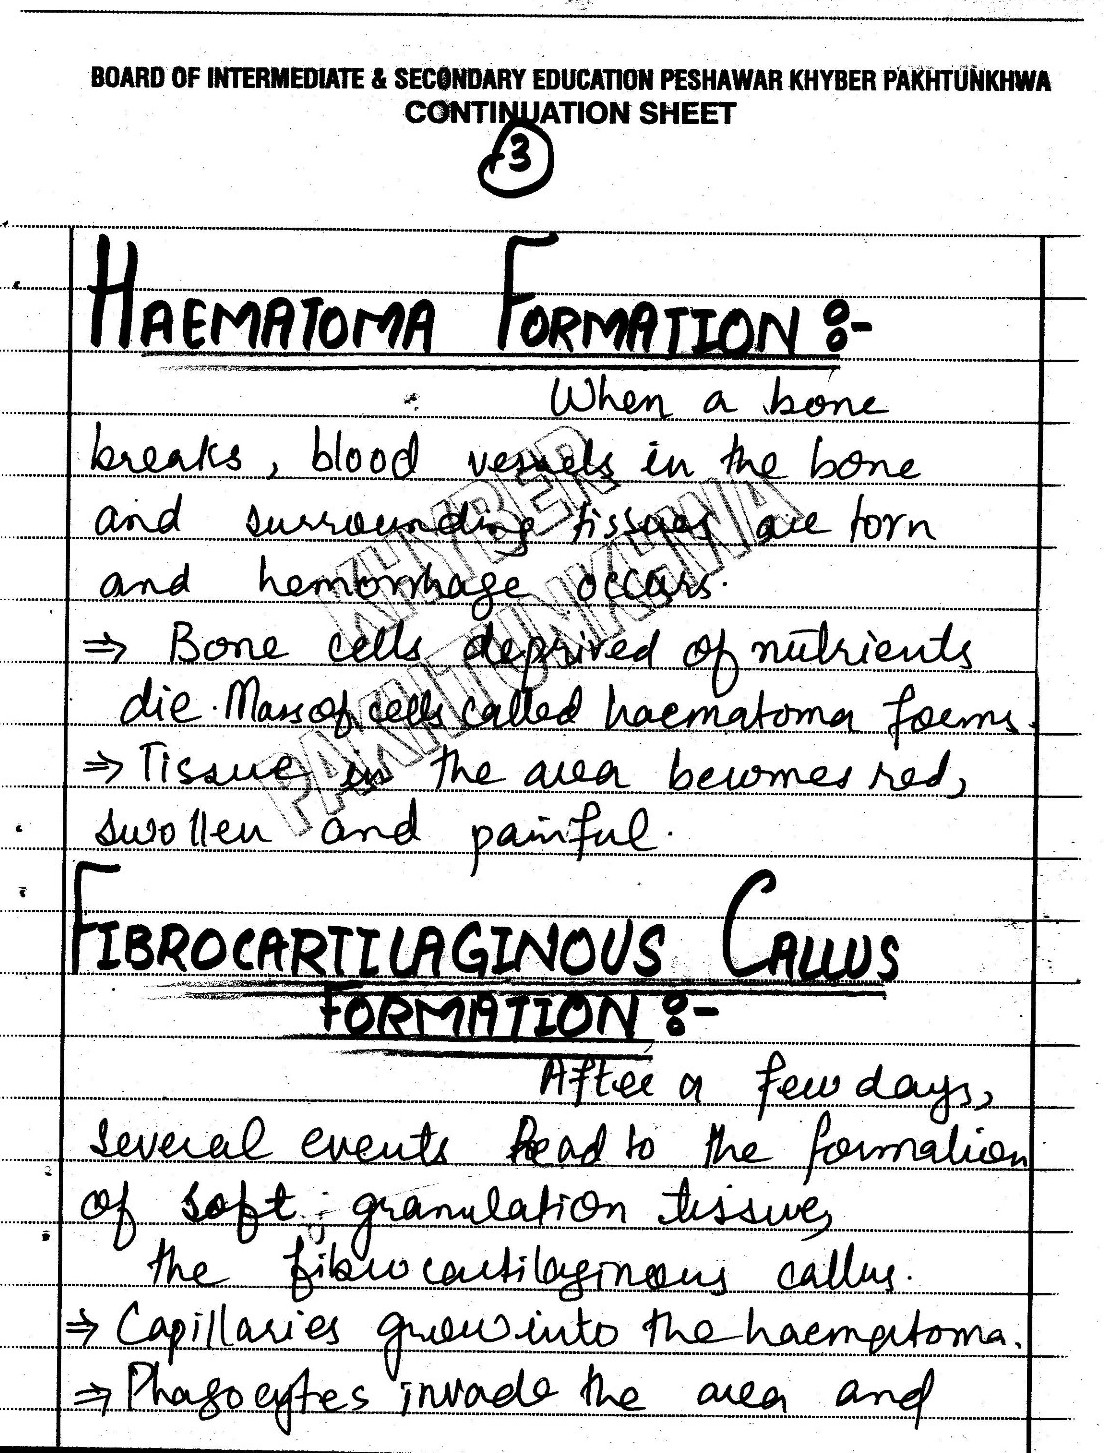 BOARD OF INTERMEDIATE & SECONDARY EDUCATION PESHAWAR KHYBER PAKHTUNKHWA
CONTINUATION SHEET
3
HAEMATOMA FORMATION :-
When a bone
breaks, blood vessels in the bone
and surrounding tissues are torn
and hemorrhage occurs.
⇒ Bone cells deprived of nutrients
die. Mass of cells called haematoma forms.
⇒ Tissue in the area becomes red,
swollen and painful.
KHYBER
PAKHTUNKHWA
FIBROCARTILAGINOUS CALLUS
FORMATION :-
After a few days,
several events lead to the formation
of soft granulation tissue,
the fibrocartilaginous callus.
⇒ Capillaries grow into the haematoma.
⇒ Phagocytes invade the area and